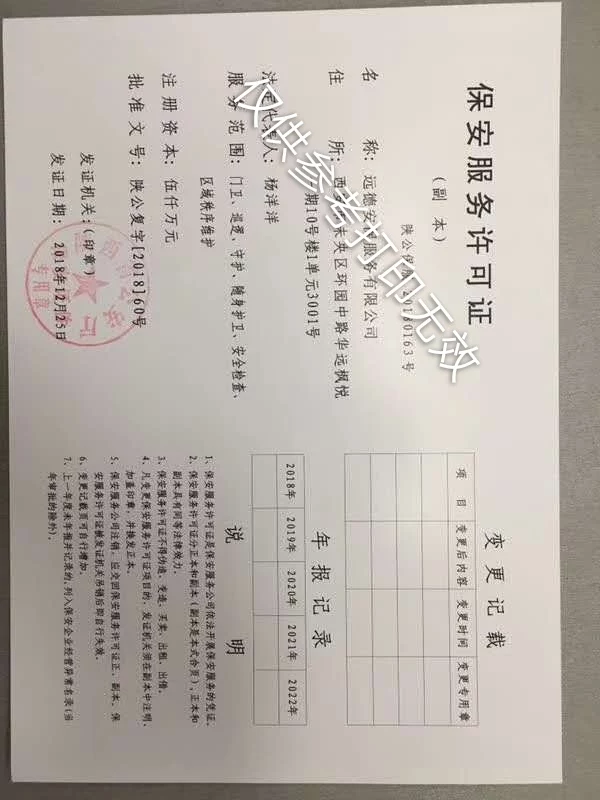 保安服务许可证
（副 本）
陕公保服20180163号
名 称：远德安保服务有限公司
住 所：西 未央区环园中路华远枫悦
期10号楼1单元3001号
法定代表人：杨洋洋
服务范围：门卫、巡逻、守护、随身护卫、安全检查、
区域秩序维护
注册资本：伍仟万元
批准文号：陕公复字[2018]60号
发证机关：（印章）
发证日期：2018年12月25日
专用章
仅供参考打印无效
变更记载
项 目 变更后内容 变更时间 变更专用章
年报记录
2018年 2019年 2020年 2021年 2022年
说 明
1、保安服务许可证是保安服务公司依法开展保安服务的凭证。
2、保安服务许可证分正本和副本（副本是本式合页），正本和
副本具有同等法律效力。
3、保安服务许可证不得伪造、变造、买卖、出租、出借。
4、凡变更保安服务许可证项目的，发证机关须在副本中注明、
加盖印章，并换发正本。
5、保安服务公司注销，应交回保安服务许可证正、副本。保
安服务许可证被发证机关吊销后即自行失效。
6、变更记载页可自行增加。
7、上一年度未年报并记录的，列入保安企业经营异常名录（当
年审批的除外）。